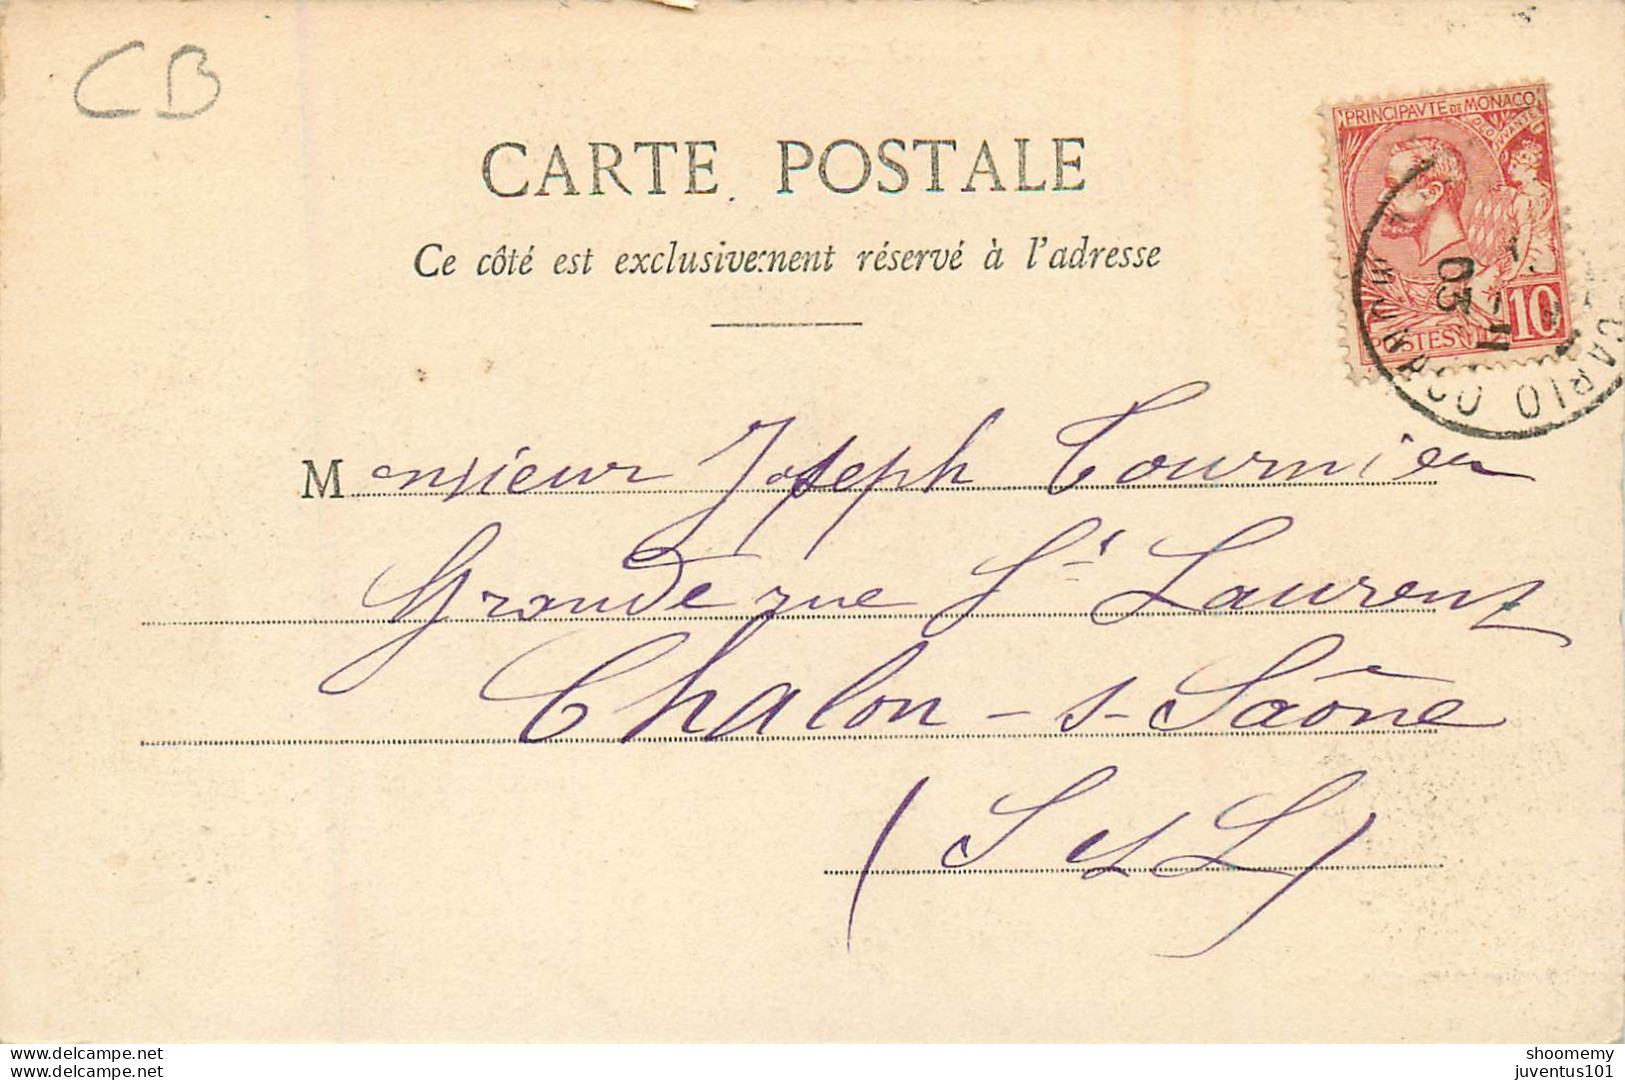 CB
CARTE POSTALE
Ce côté est exclusivement réservé à l'adresse
PRINCIPAVTE DE MONACO
DEO JUVANTE
POSTES
10
03
Monsieur Joseph Tournier
Grande rue St Laurent
Chalon-s-Saône
(S et L)
www.delcampe.net
www.delcampe.net
shoomemy
juventus101